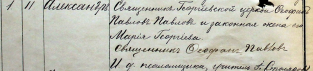 1 11 Александръ Священникъ Георгіевской церкви Ѳеодоръ
Павловъ Павловъ и законная жена его
Марія Георгіева
Священникъ Ѳеофанъ Павловъ
И. д. псаломщика, учитель